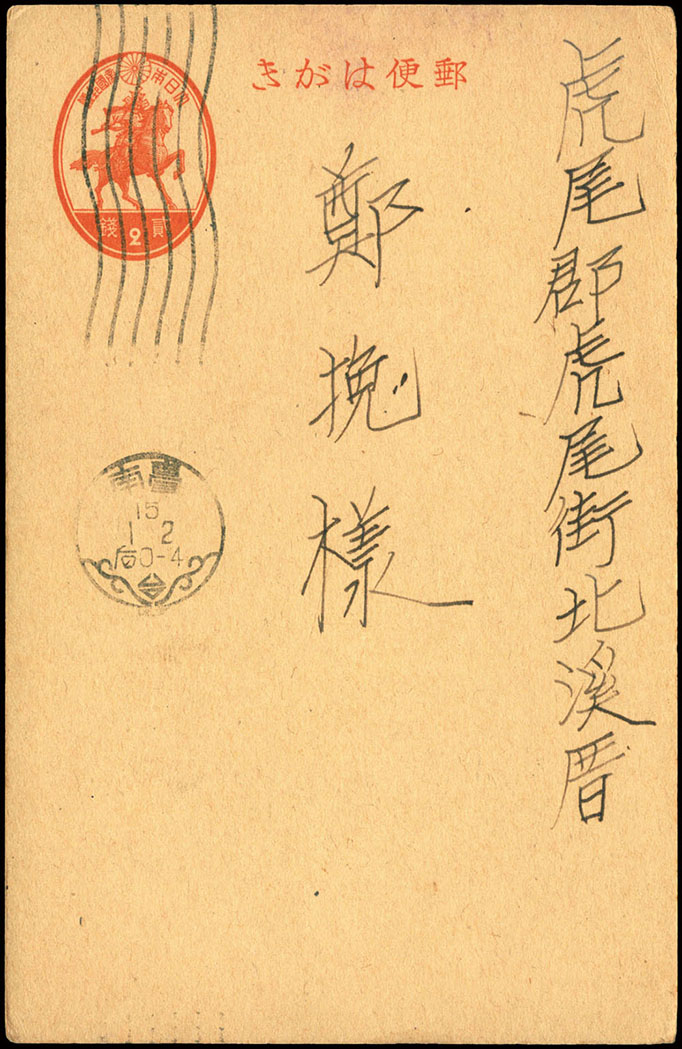 虎尾郡虎尾街北溪厝
鄭挽樣
郵便はがき
大日本帝國郵便
貳2錢
臺南
15
1-2
后0-4